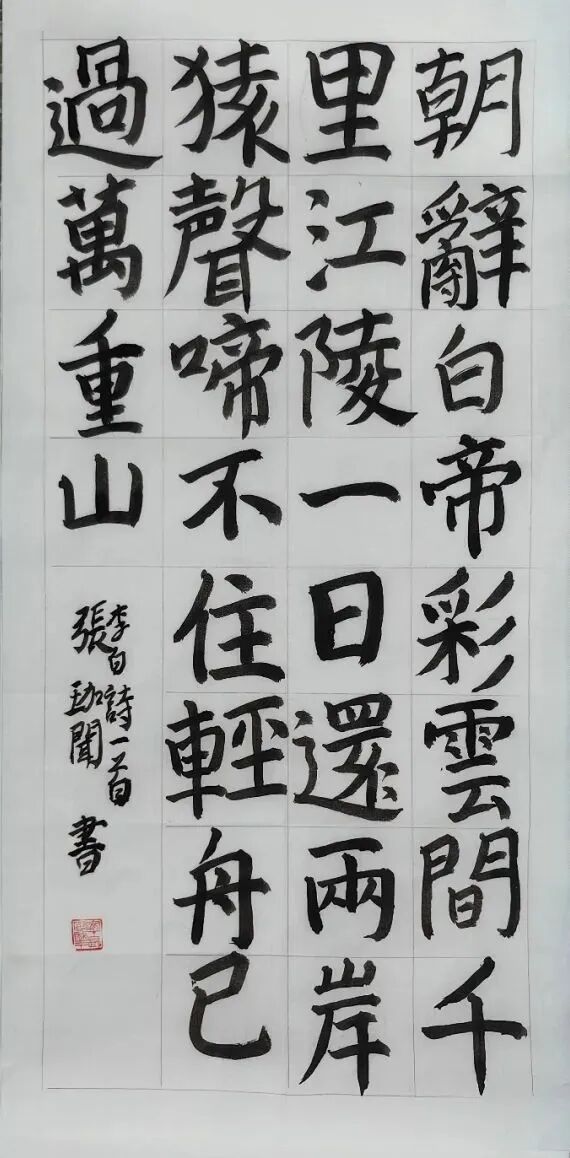 朝辭白帝彩雲間千
里江陵一日還兩岸
猿聲啼不住輕舟已
過萬重山
李白詩一首
張珈聞 書